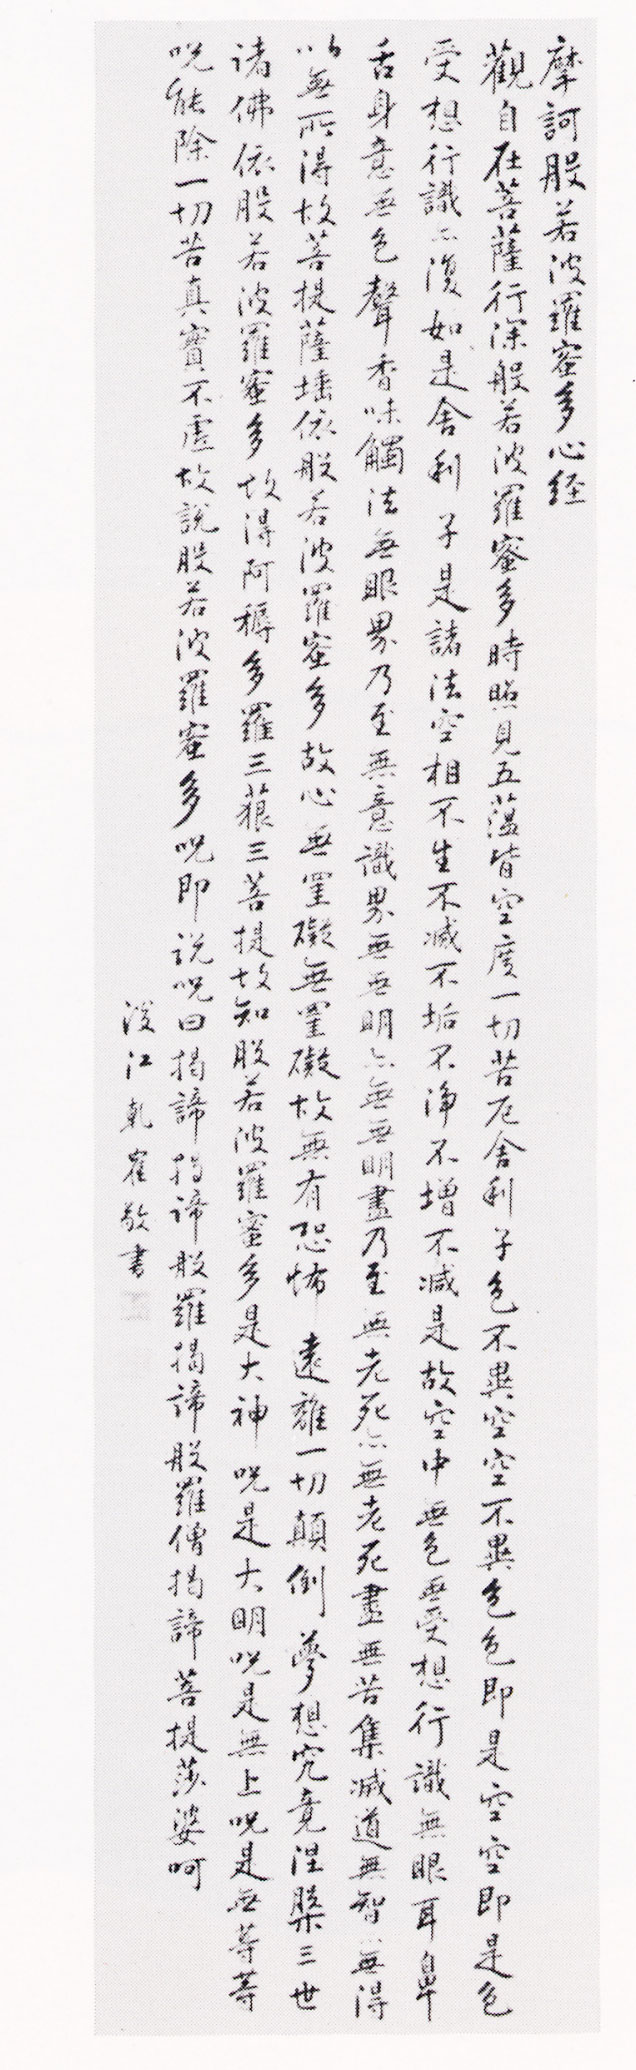 摩訶般若波羅蜜多心経
觀自在菩薩行深般若波羅蜜多時照見五蘊皆空度一切苦厄舍利子色不異空空不異色色即是空空即是色
受想行識亦復如是舍利子是諸法空相不生不滅不垢不淨不增不減是故空中無色無受想行識無眼耳鼻
舌身意無色聲香味觸法無眼界乃至無意識界無無明亦無無明盡乃至無老死亦無老死盡無苦集滅道無智無得
以無所得故菩提薩埵依般若波羅蜜多故心無罣礙無罣礙故無有恐怖遠離一切顛倒夢想究竟涅槃三世
诸佛依般若波羅蜜多故得阿耨多羅三藐三菩提故知般若波羅蜜多是大神呪是大明呪是無上呪是無等等
呪能除一切苦真實不虛故說般若波羅蜜多呪即説呪曰揭諦揭諦般羅揭諦般羅僧揭諦菩提莎婆呵
江乾崔敬書